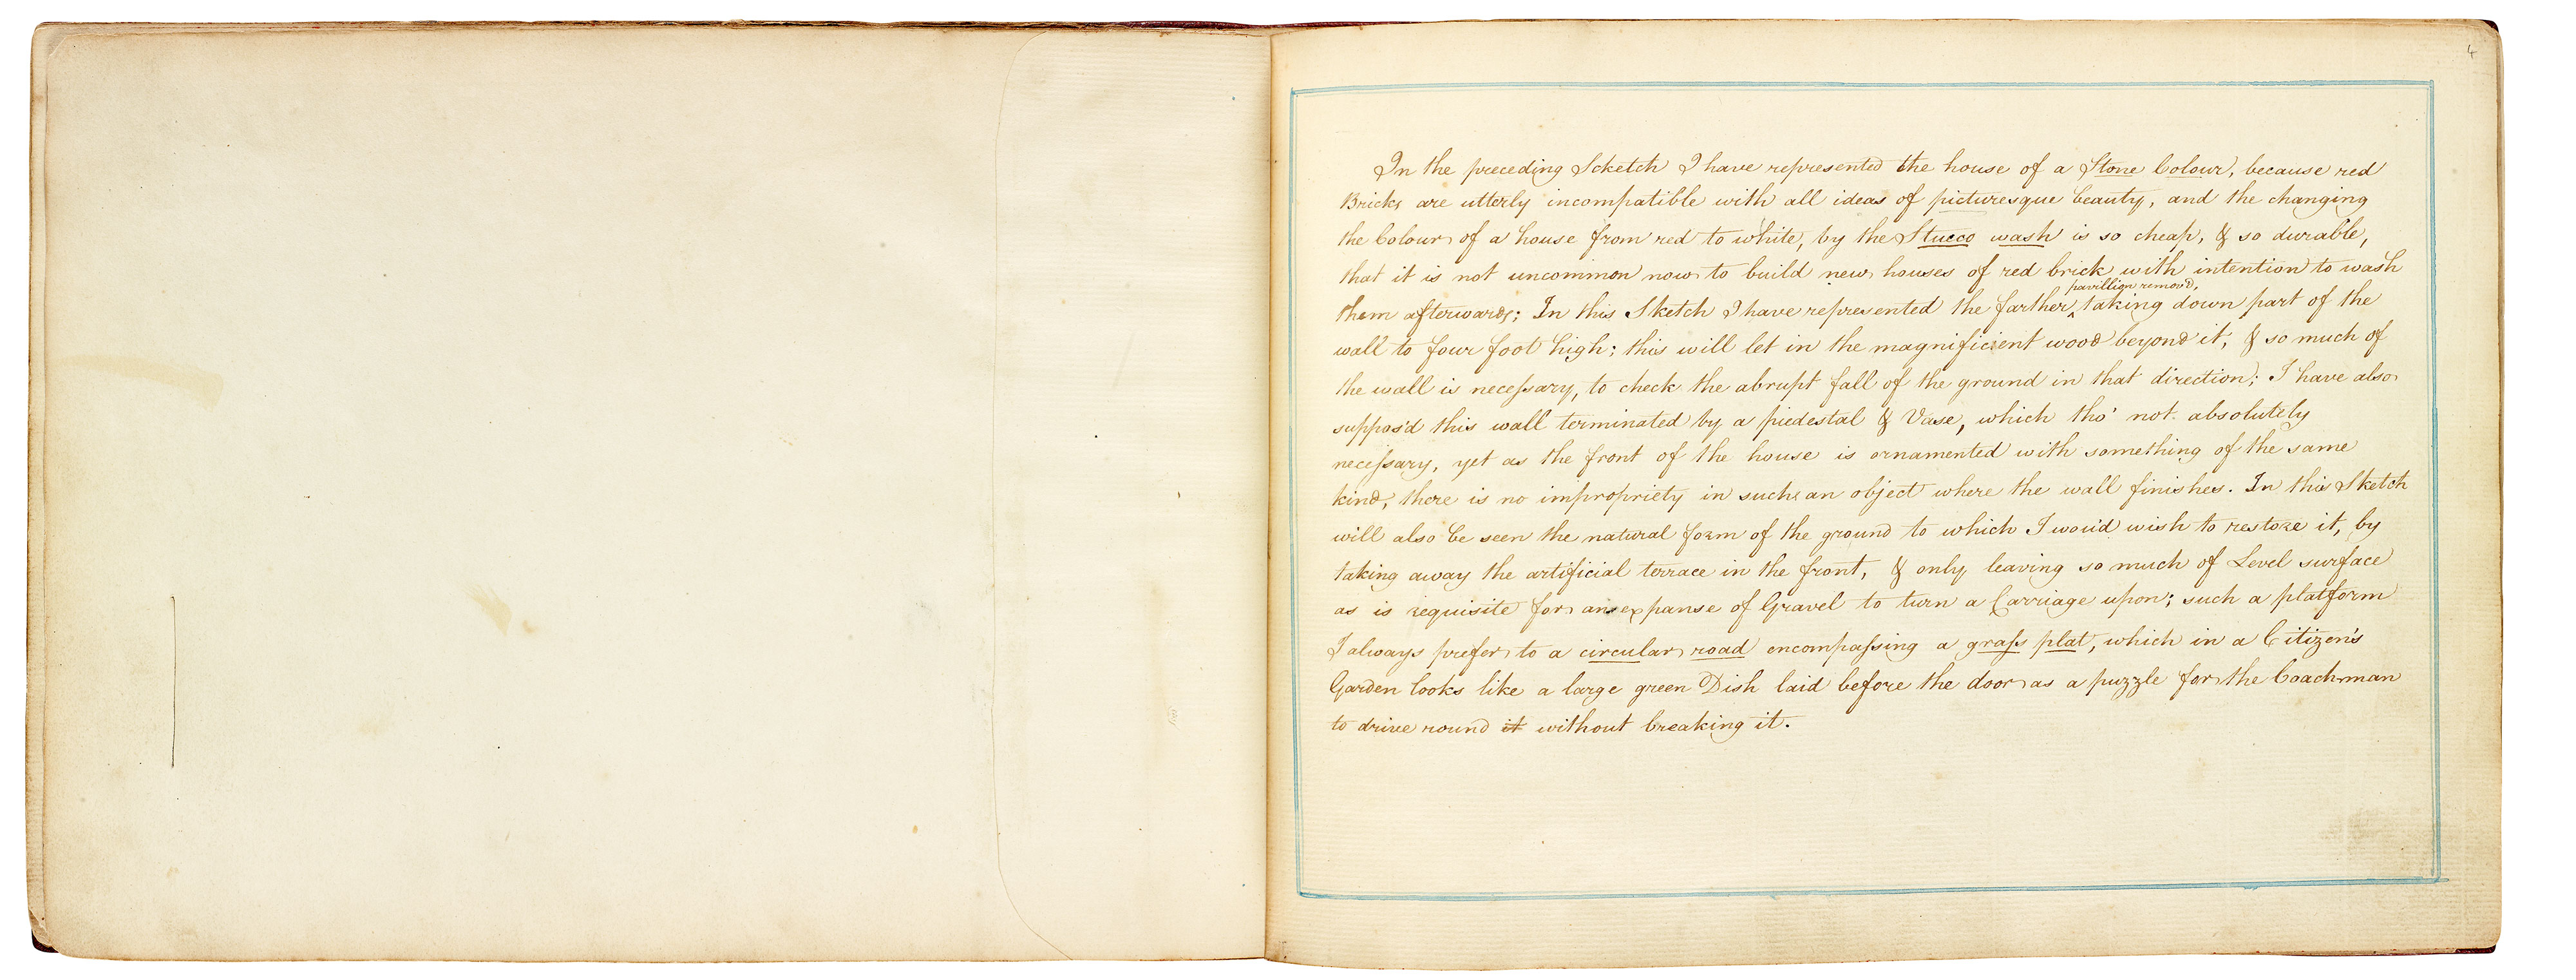 4
In the preceding Scketch I have represented the house of a Stone Colour, because red
Bricks are utterly incompatible with all ideas of picturesque beauty, and the changing
the Colour of a house from red to white, by the Stucco wash is so cheap, & so durable,
that it is not uncommon now to build new houses of red brick with intention to wash
pavillion remov'd,
them afterwards; In this Sketch I have represented the farther ‸ taking down part of the
wall to four foot high; this will let in the magnificient wood beyond it, & so much of
the wall is neceſsary, to check the abrupt fall of the ground in that direction; I have also
suppos'd this wall terminated by a piedestal & Vase, which tho' not absolutely
neceſsary, yet as the front of the house is ornamented with something of the same
kind, there is no impropriety in such an object where the wall finishes. In this Sketch
will also be seen the natural form of the ground to which I wou'd wish to restore it, by
taking away the artificial terrace in the front, & only leaving so much of Level surface
as is requisite for an expanse of Gravel to turn a Carriage upon; such a platform
I always prefer to a circular road encompaſsing a graſs plat, which in a Citizen's
Garden looks like a large green Dish laid before the door as a puzzle for the Coachman
to drive round it without breaking it.